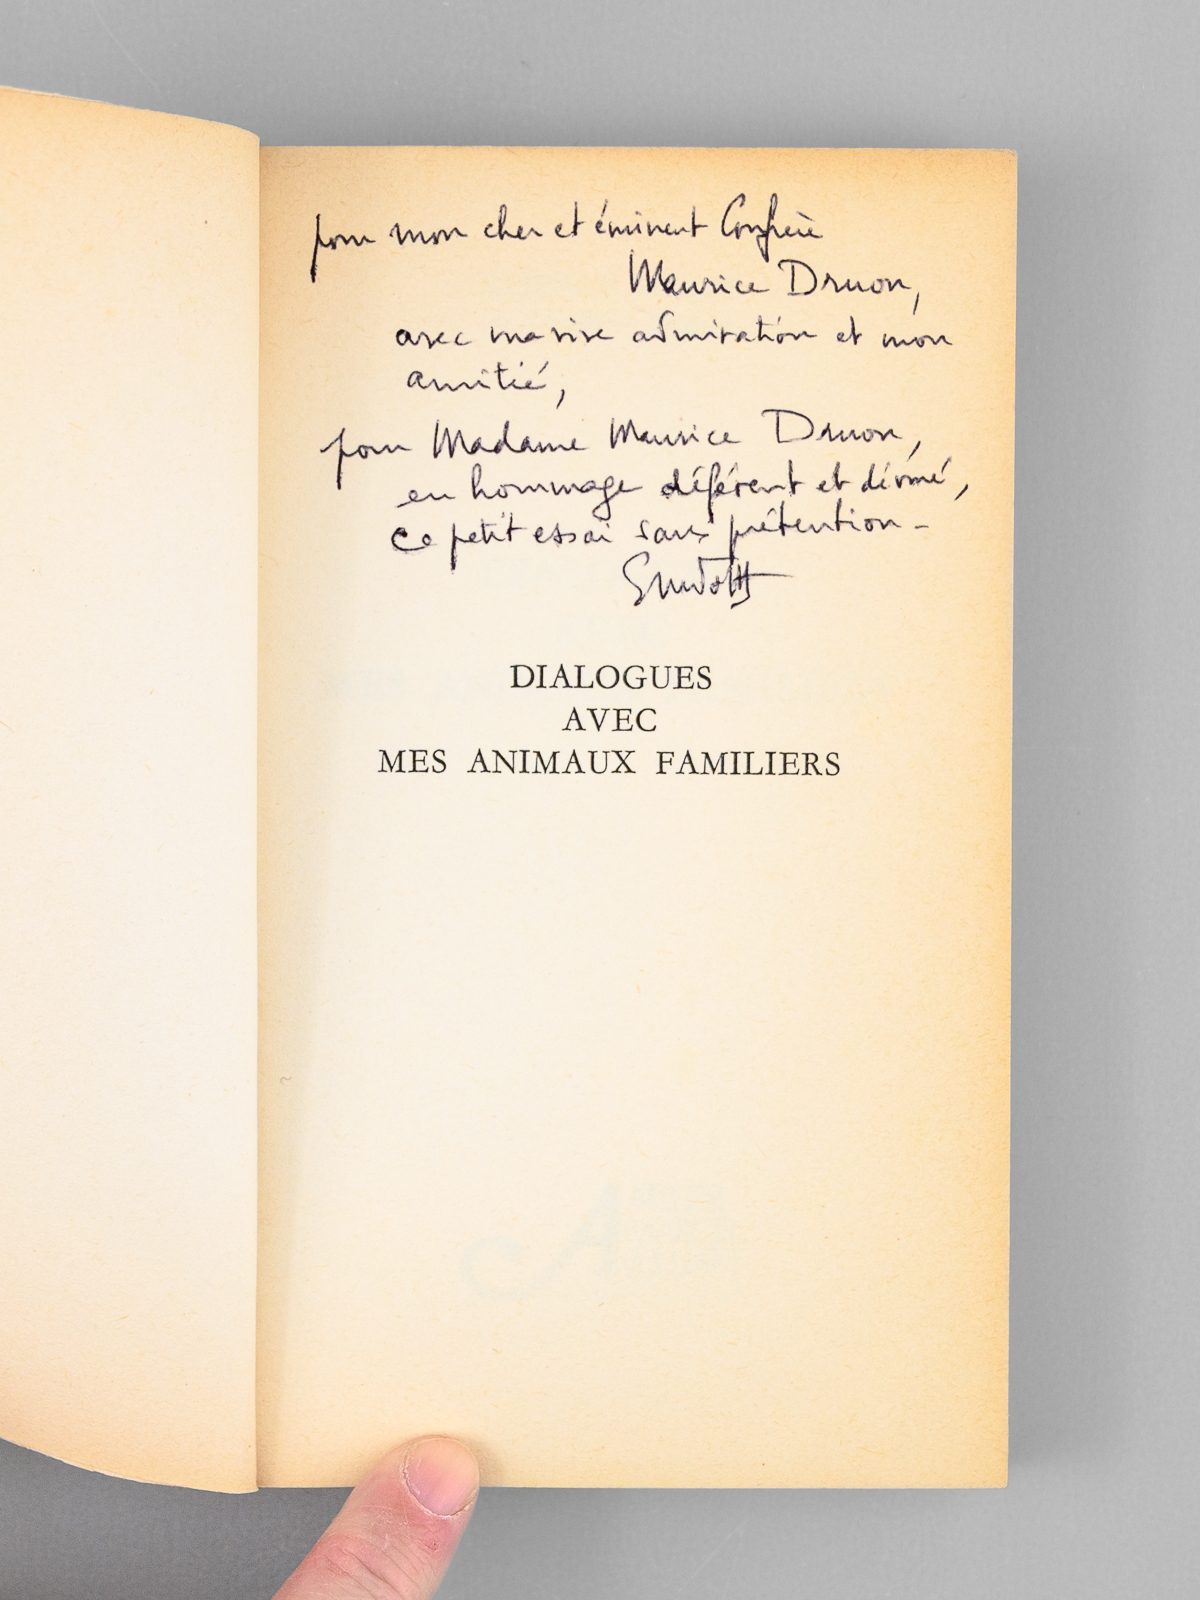 pour mon cher et éminent Confrère
Maurice Druon,
avec ma vive admiration et mon
amitié,
pour Madame Maurice Druon,
en hommage déférent et
ce petit essai sans prétention -
DIALOGUES
AVEC
MES ANIMAUX FAMILIERS